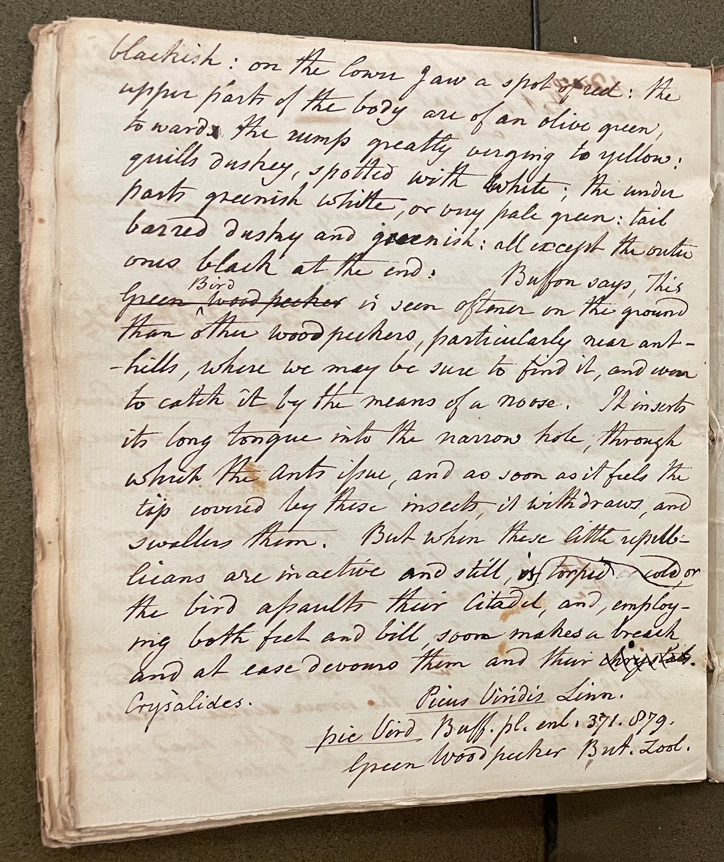 blackish: on the lower Jaw a spot of red: the
upper parts of the body are of an olive green,
towards the rump greatly verging to yellow:
quills duskey, spotted with white; the under
parts greenish white, or very pale green: tail
barred dusky and greenish: all except the outer
ones black at the end: Buffon says, This
Bird
Green Woodpecker is seen oftener on the ground
than other woodpeckers, particularly near ant-
-hills, where we may be sure to find it, and even
to catch it by the means of a noose. It inserts
its long tongue into the narrow hole, through
which the Ants issue, and as soon as it feels the
tip covered by these insects, it withdraws, and
swallows them. But when these little republ-
licans are inactive and still, torpid or cold, or
the bird assaults their Citadel, and, employ-
ing both feet and bill, soon makes a breach
and at ease devours them and their chrystals.
Crysalides. Picus Viridis Linn.
pic Verd Buff. pl. enl. 371. 879.
Green Woodpecker Brit. Zool.